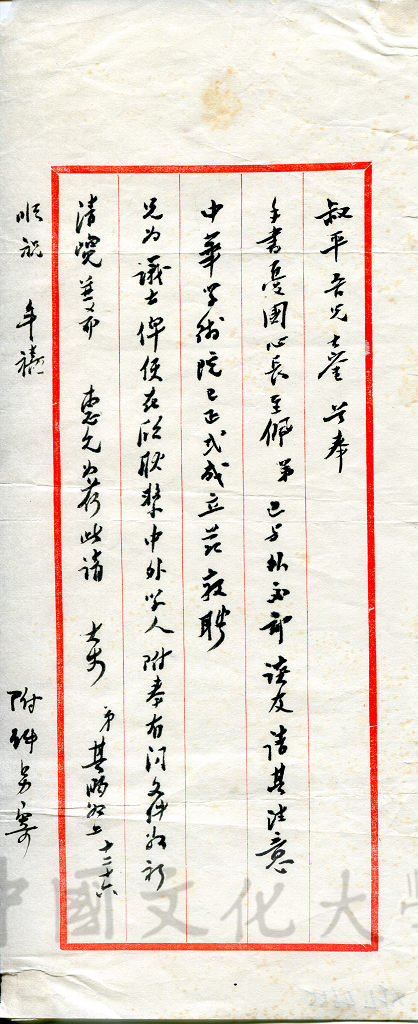 叔平吾兄大鑒 芸奉
手書憂國心長至佩 弟已與外交部諸友請其注意
中華學術院已正式成立茲敦聘
兄為議士俾便在歐聯繫中外學人 附奉有關文件敬祈
清覽並希 惠允為荷此請 大安
弟 其昀敬上 十二十六
順祝 年禧
附件另寄
中國文化大學